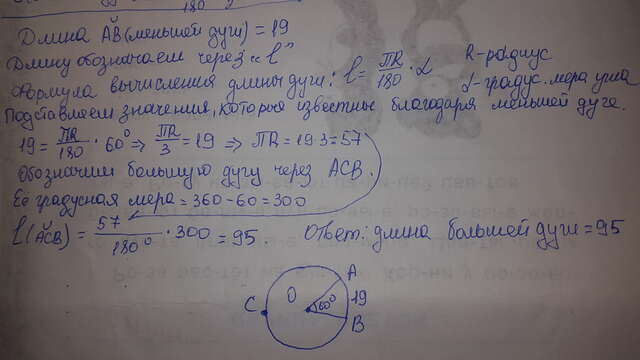 180
Длина AB (меньшей дуги) = 19
Длину обозначаем через "l"
Формула вычисления длины дуги: l = ПR/180 · α R-радиус
α-градус. мера угла
Подставляем значения, которые известные благодаря меньшей дуге.
19 = ПR/180 · 60° ⇒ ПR/3 = 19 ⇒ ПR = 19·3 = 57
Обозначим большую дугу через ACB.
Её градусная мера = 360 - 60 = 300
l(ACB) = 57/180° · 300 = 95. Ответ: длина большей дуги = 95
A
C O 60° 19
B